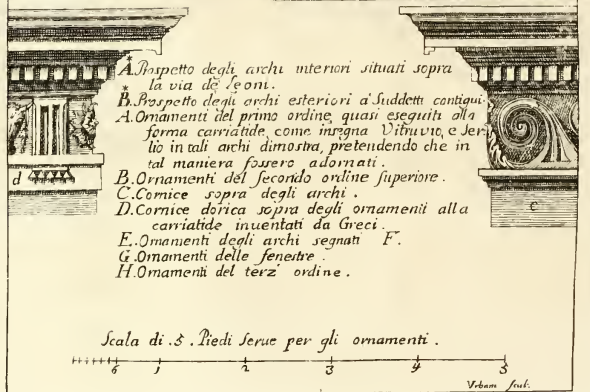 *A. Prospetto degli archi interiori situati sopra
la via de' leoni.
*B. Prospetto degli archi esteriori a' Suddetti contigui.
A. Ornamenti del primo ordine, quasi eseguiti alla
forma carriatide, come insegna Vitruvio, e Ser
lio in tali archi dimostra, pretendendo che in
tal maniera fossero adornati.
B. Ornamenti del secondo ordine superiore.
C. Cornice sopra degli archi.
D. Cornice dorica sopra degli ornamenti alla
carriatide inuentati da Greci.
E. Ornamenti degli archi segnati F.
G. Ornamenti delle fenestre.
H. Ornamenti del terz' ordine.
d
c
Scala di .5. Piedi serue per gli ornamenti.
6 1 2 3 4 5
Vrbani scul.